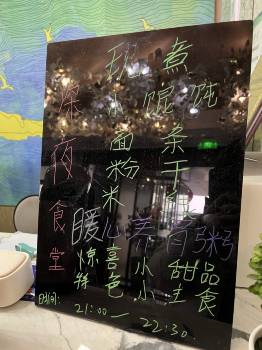 深夜食堂
现煮
小馄饨
面条
粉干
米
暖心养胃粥
惊喜小甜品
特色小主食
时间: 21:00—22:30.